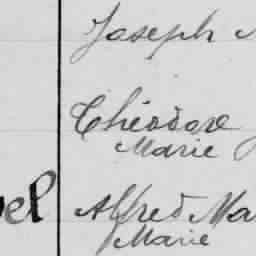 Joseph
Théodore
Marie
Alfred Ma
Marie